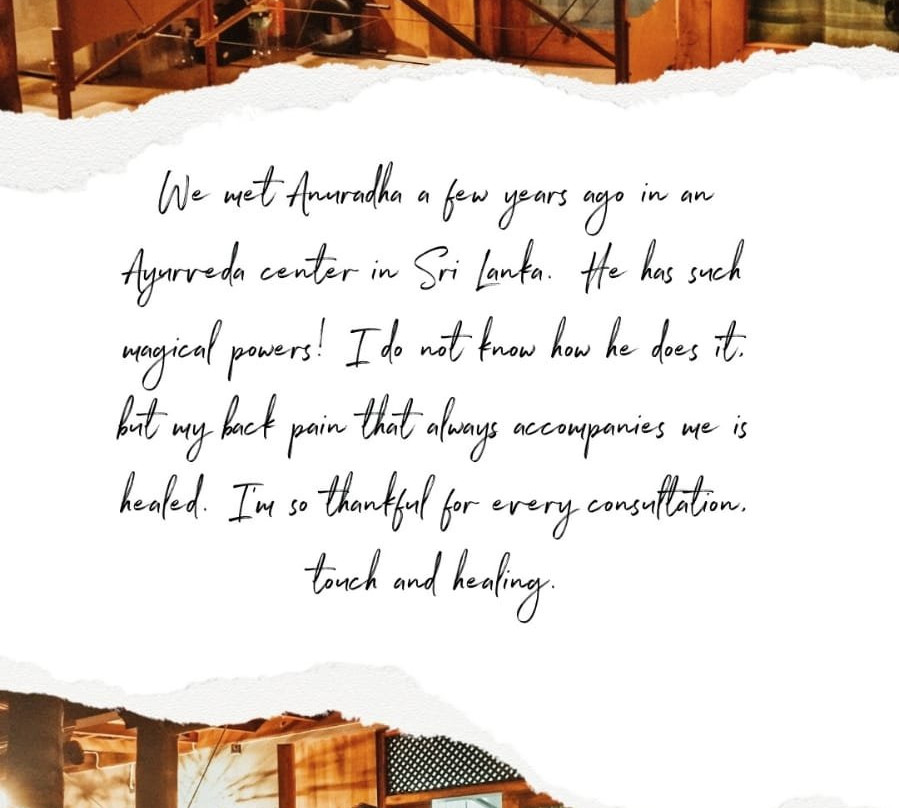 We met Anuradha a few years ago in an
Ayurveda center in Sri Lanka. He has such
magical powers! I do not know how he does it,
but my back pain that always accompanies me is
healed. I'm so thankful for every consultation,
touch and healing.